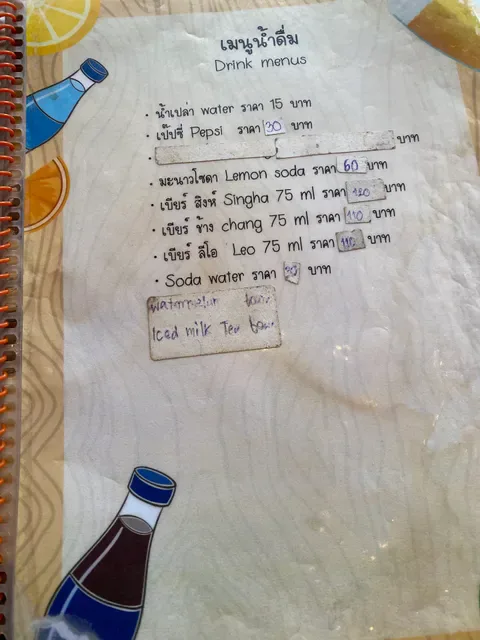 เมนูน้ำดื่ม
Drink menus
· น้ำเปล่า water ราคา 15 บาท
· เป๊ปซี่ Pepsi ราคา 30 บาท
· บาท
· มะนาวโซดา Lemon soda ราคา 60 บาท
· เบียร์ สิงห์ Singha 75 ml ราคา 120 บาท
· เบียร์ ช้าง chang 75 ml ราคา 110 บาท
· เบียร์ ลีโอ Leo 75 ml ราคา 110 บาท
· Soda water ราคา บาท
Watermelon
Iced milk Tea